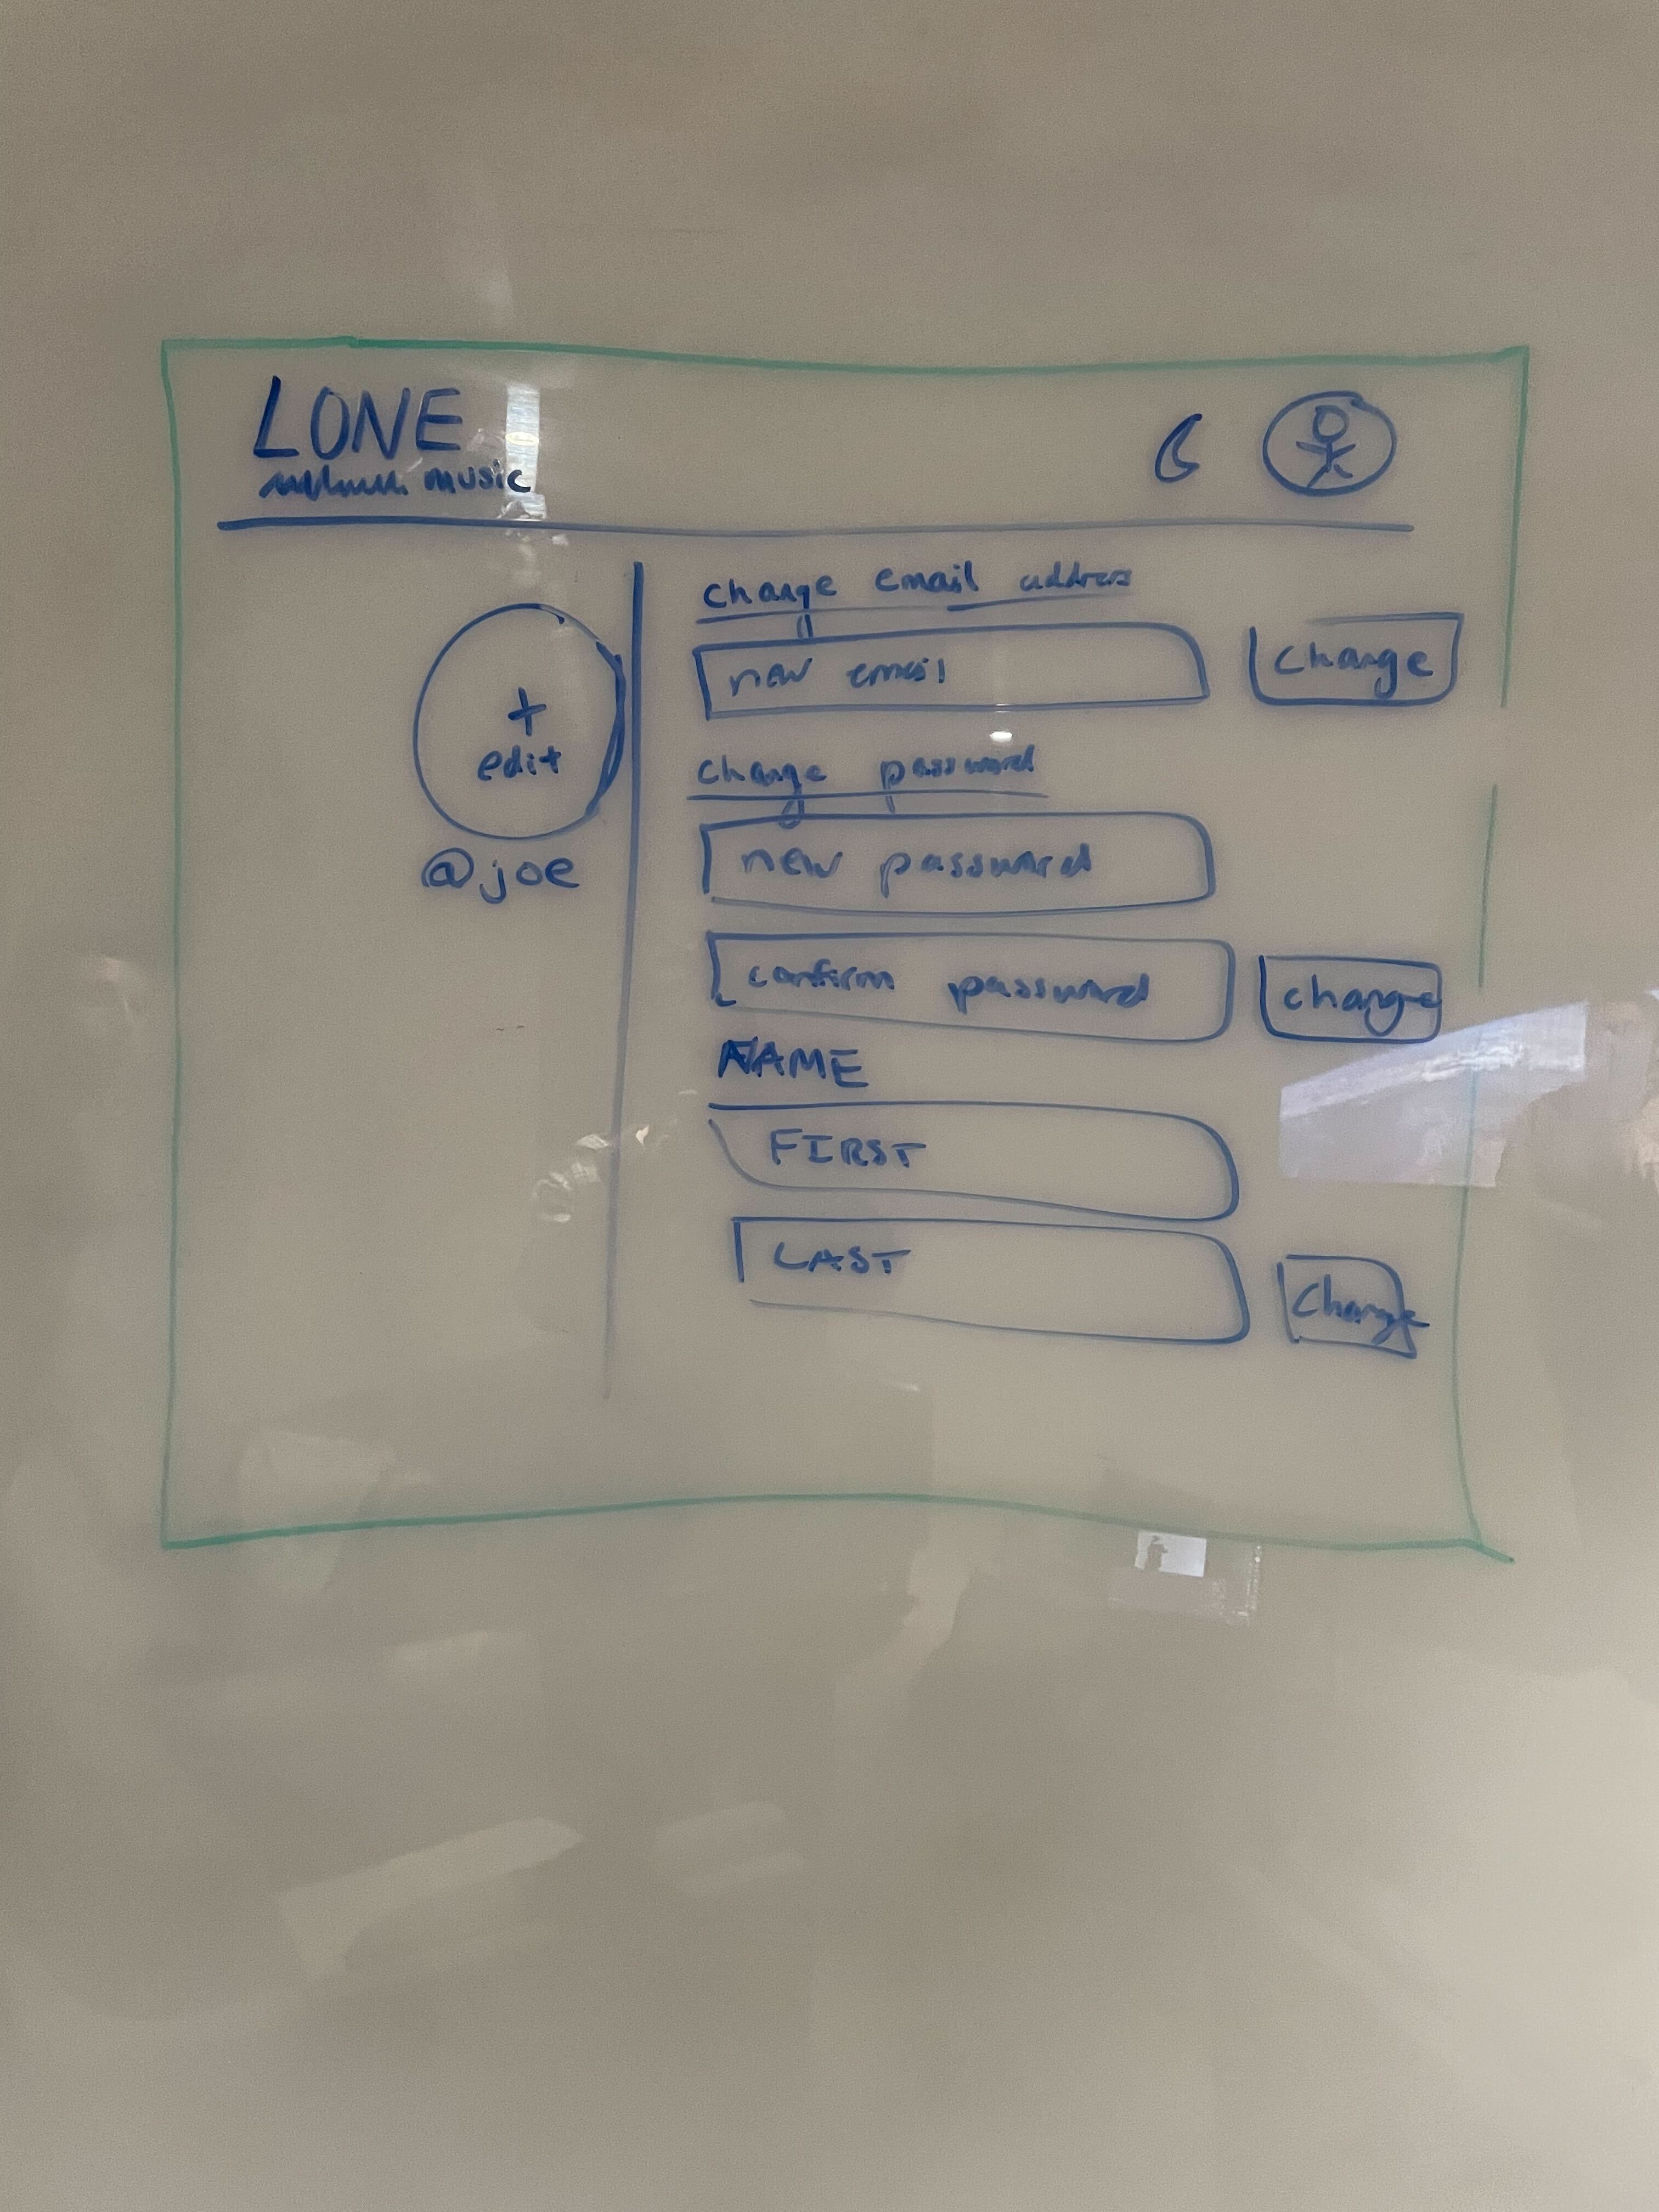 LONE
music
change email address
new email
change
+
edit
@joe
change password
new password
confirm password
change
NAME
FIRST
LAST
change